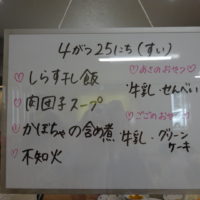 4がつ25にち(すい)
♡しらす干し飯
♡肉団子スープ
♡かぼちゃの含め煮
♡不知火
♡あさのおやつ♡
牛乳・せんべい
♡ごごのおやつ♡
牛乳・グリーン
ケーキ